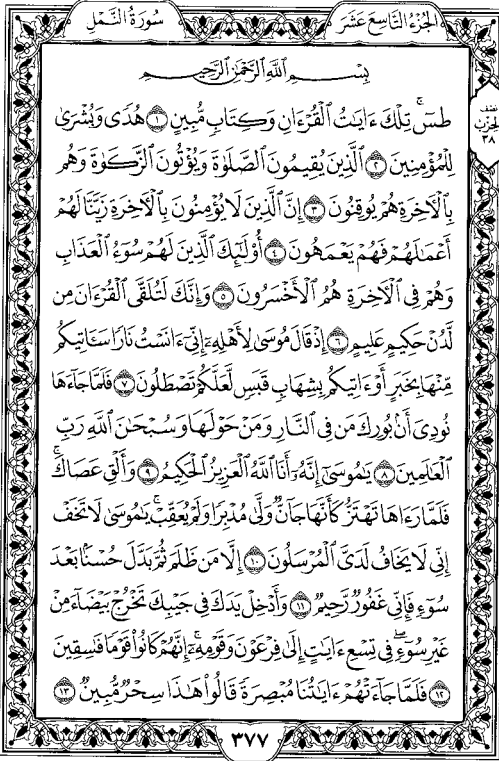 الجزء التاسع عشر
سورة النمل
نصف
الحزب
٣٨
بِسْمِ ٱللَّهِ ٱلرَّحْمَٰنِ ٱلرَّحِيمِ
طسٓ ۚ تِلْكَ ءَايَٰتُ ٱلْقُرْءَانِ وَكِتَابٍ مُّبِينٍ ١ هُدًى وَبُشْرَىٰ
لِلْمُؤْمِنِينَ ٢ ٱلَّذِينَ يُقِيمُونَ ٱلصَّلَوٰةَ وَيُؤْتُونَ ٱلزَّكَوٰةَ وَهُم
بِٱلْءَاخِرَةِ هُمْ يُوقِنُونَ ٣ إِنَّ ٱلَّذِينَ لَا يُؤْمِنُونَ بِٱلْءَاخِرَةِ زَيَّنَّا لَهُمْ
أَعْمَٰلَهُمْ فَهُمْ يَعْمَهُونَ ٤ أُو۟لَٰٓئِكَ ٱلَّذِينَ لَهُمْ سُوٓءُ ٱلْعَذَابِ
وَهُمْ فِى ٱلْءَاخِرَةِ هُمُ ٱلْأَخْسَرُونَ ٥ وَإِنَّكَ لَتُلَقَّى ٱلْقُرْءَانَ مِن
لَّدُنْ حَكِيمٍ عَلِيمٍ ٦ إِذْ قَالَ مُوسَىٰ لِأَهْلِهِۦٓ إِنِّىٓ ءَانَسْتُ نَارًا سَـَٔاتِيكُم
مِّنْهَا بِخَبَرٍ أَوْ ءَاتِيكُم بِشِهَابٍ قَبَسٍ لَّعَلَّكُمْ تَصْطَلُونَ ٧ فَلَمَّا جَآءَهَا
نُودِىَ أَنۢ بُورِكَ مَن فِى ٱلنَّارِ وَمَنْ حَوْلَهَا وَسُبْحَٰنَ ٱللَّهِ رَبِّ
ٱلْعَٰلَمِينَ ٨ يَٰمُوسَىٰٓ إِنَّهُۥٓ أَنَا ٱللَّهُ ٱلْعَزِيزُ ٱلْحَكِيمُ ٩ وَأَلْقِ عَصَاكَ ۚ
فَلَمَّا رَءَاهَا تَهْتَزُّ كَأَنَّهَا جَآنٌّ وَلَّىٰ مُدْبِرًا وَلَمْ يُعَقِّبْ ۚ يَٰمُوسَىٰ لَا تَخَفْ
إِنِّى لَا يَخَافُ لَدَىَّ ٱلْمُرْسَلُونَ ١٠ إِلَّا مَن ظَلَمَ ثُمَّ بَدَّلَ حُسْنًۢا بَعْدَ
سُوٓءٍ فَإِنِّى غَفُورٌ رَّحِيمٌ ١١ وَأَدْخِلْ يَدَكَ فِى جَيْبِكَ تَخْرُجْ بَيْضَآءَ مِنْ
غَيْرِ سُوٓءٍ ۖ فِى تِسْعِ ءَايَٰتٍ إِلَىٰ فِرْعَوْنَ وَقَوْمِهِۦٓ ۚ إِنَّهُمْ كَانُوا۟ قَوْمًا فَٰسِقِينَ
١٢ فَلَمَّا جَآءَتْهُمْ ءَايَٰتُنَا مُبْصِرَةً قَالُوا۟ هَٰذَا سِحْرٌ مُّبِينٌ ١٣
٣٧٧